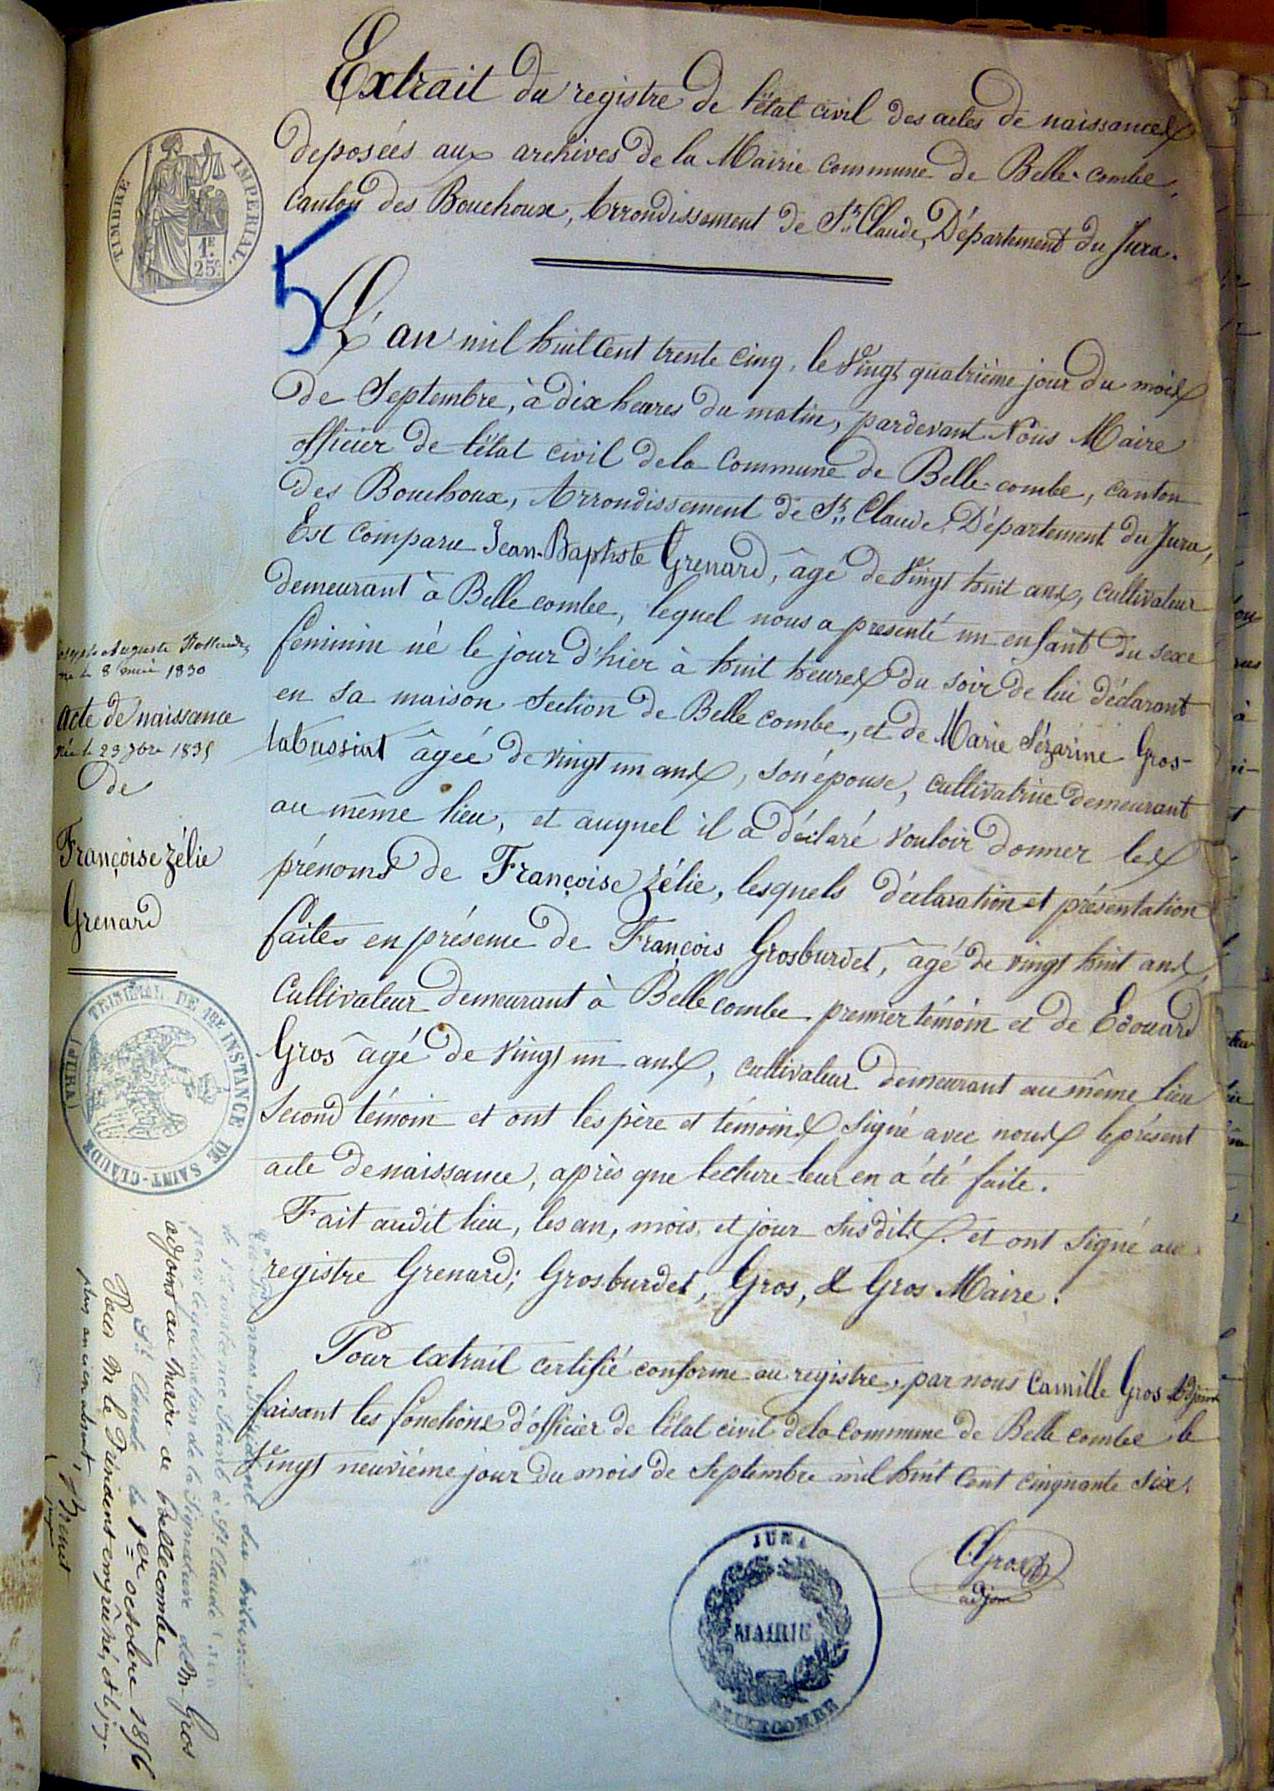 Extrait du registre de l'état civil des actes de naissances
déposées aux archives de la Mairie commune de Belle-combe,
Canton des Bouchoux, Arrondissement de St Claude, Département du Jura.
TIMBRE IMPERIAL.
1F 25c
5
L'an mil huit cent trente cinq, le vingt quatrième jour du mois
de Septembre, à dix heures du matin, pardevant Nous Maire
officier de l'état civil de la Commune de Belle-combe, canton
des Bouchoux, Arrondissement de St Claude, Département du Jura,
Est comparu Jean-Baptiste Grenard, âgé de vingt huit ans, cultivateur
demeurant à Belle combe, lequel nous a présenté un enfant du sexe
féminin né le jour d'hier à huit heures du soir de lui déclarant
en sa maison Section de Belle combe, et de Marie Sézarine Gros-
tabussiat âgée de vingt un ans, son épouse, cultivatrice demeurant
au même lieu, et auquel il a déclaré vouloir donner les
prénoms de Françoise Zélie, lesquels déclaration et présentation
faites en présence de François Grosburdet, âgé de vingt huit ans,
Cultivateur demeurant à Belle combe premier témoin et de Edouard
Gros âgé de vingt un ans, cultivateur demeurant au même lieu
Second témoin et ont les père et témoins signé avec nous le présent
acte de naissance, après que lecture leur en a été faite.
Fait audit lieu, les an, mois, et jour susdits. et ont signé au
registre Grenard; Grosburdet, Gros, & Gros Maire.
Pour extrait certifié conforme au registre, par nous Camille Gros Adjoint
faisant les fonctions d'officier de l'état civil de la commune de Belle combe le
Vingt neuvième jour du mois de Septembre mil huit cent cinquante six.
CGros
adjoint
JURA
MAIRIE
BELLECOMBE
Auguste
né le 8 1830
Acte de naissance
Née le 23 7bre 1835
de
Françoise Zélie
Grenard
TRIBUNAL DE 1RE INSTANCE DE SAINT-CLAUDE (JURA)
nous Président du tribunal
de 1re instance séant à St Claude
pour légalisation de la Signature de M Gros
adjoint au maire de Bellecombe
St Claude le 1er octobre 1856
Pour M le Président empêché, et le juge
plus ancien absent,
juge